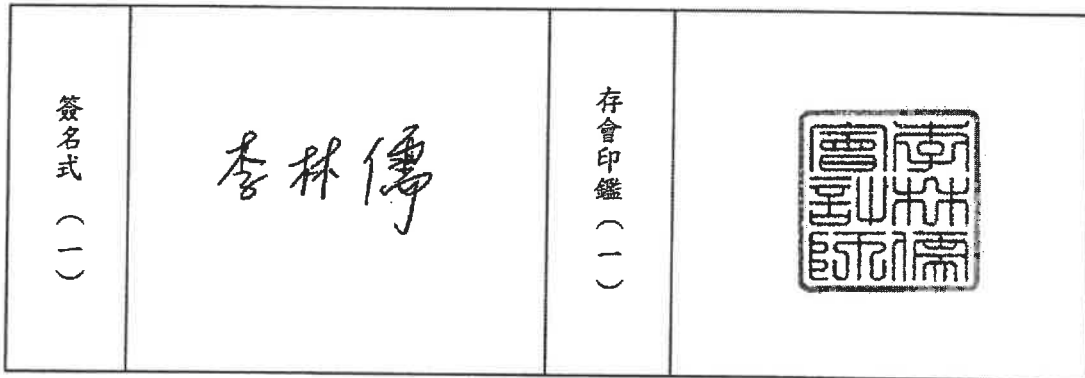 簽名式（一）
李林儒
存會印鑑（一）
李林儒
會計師